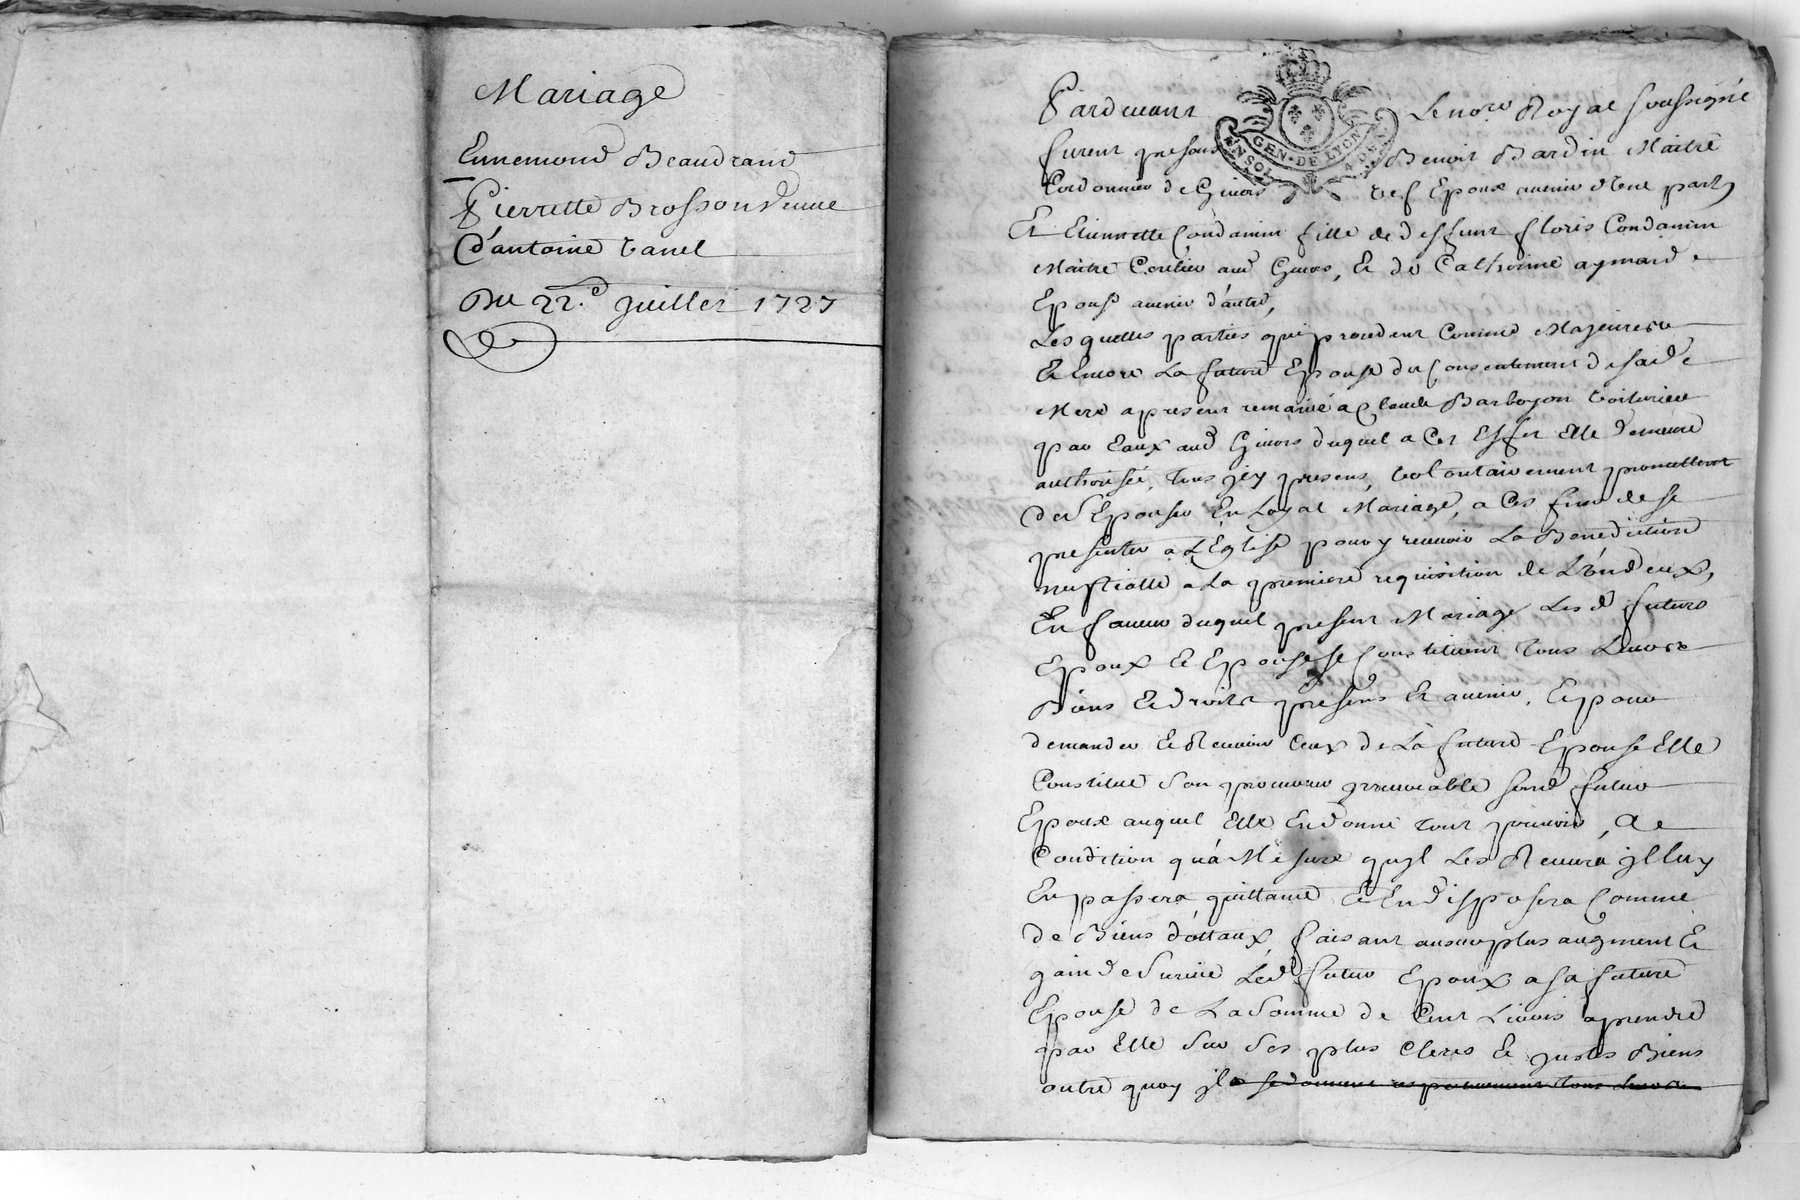 Mariage
Ennemond Beaudrand
Pierrette Brossond veuve
d'antoine Canel
Du 22.e Juillet 1727
GEN. DE LYON
Pardevant Le no.re Royal soussigné
furent presens Benoit Bardin Maitre
Cordonnier de Givors Epoux avenir d'une part,
Et Etiennette Condamin fille de deffunt floris Condamin
Maitre aud Givors, & de Catherine aymard
Epouse avenir d'autre,
Lesquelles parties qui procedent comme Majeures
& Encore La future Epouse du Consentement de sad.
Mere a present remariée a Claude Barboyon Voiturier
par Eaux aud Givors duquel a Cet Effet Elle demeure
authorisée, tous jcy presens, Volontairement promettent
de s'Epouser En Loyal Mariage, a Ces fins de se
presenter a L'Eglise pour y recevoir La Benediction
nuptialle a La premiere requisition de L'un deux,
En faveur duquel present Mariage Lesd futurs
Epoux & Epouse se Constituent tous Leurs
Biens & droits presens & avenir, & pour
demander & Recevoir Ceux de La future Epouse Elle
Constitue son procureur jrrevocable sond futur
Epoux auquel Elle En donne tout pouvoir, a
Condition qu'a Mesure qu'jl Les Recevra jl luy
En passera quittance & En disposera Comme
de Biens dottaux, faisant augment &
gain de survie Led futur Epoux a sa future
Epouse de La Somme de Cent Livres a prendre
par Elle sur ses plus Clers & justes Biens
outre quoy jls se donnent tous Leurs